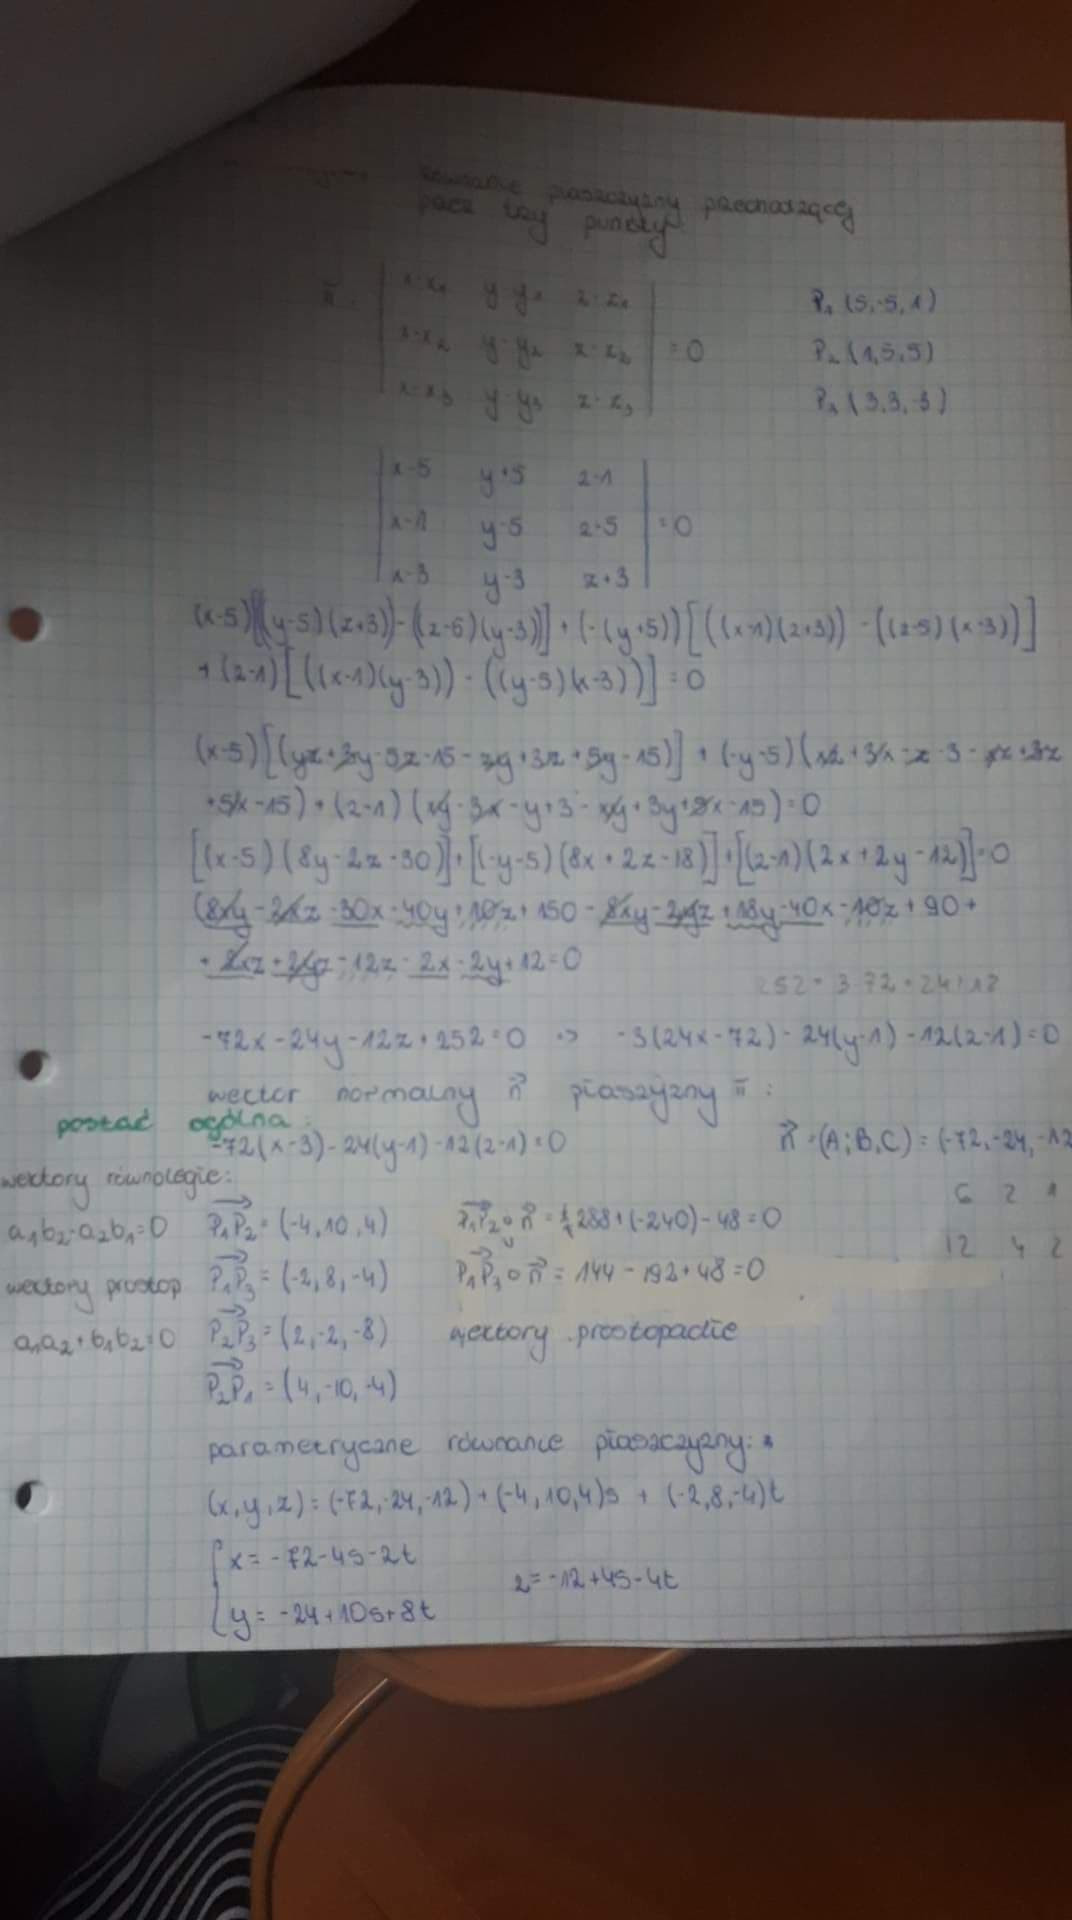 równanie płaszczyzny przechodzącej
przez trzy punkty
π: | x-x₁ y-y₁ z-z₁ |
| x-x₂ y-y₂ z-z₂ | = 0
| x-x₃ y-y₃ z-z₃ |
P₁ (5,-5,1)
P₂ (1,5,5)
P₃ (3,3,-3)
| x-5 y+5 z-1 |
| x-1 y-5 z-5 | = 0
| x-3 y-3 z+3 |
(x-5)[((y-5)(z+3))-((z-5)(y-3))] + (-(y+5))[((x-1)(z+3)) - ((z-5)(x-3))]
+ (z-1)[((x-1)(y-3)) - ((y-5)(x-3))] = 0
(x-5)[(yz+3y-5z-15-zy+3z+5y-15)] + (-y-5)(xz+3x-z-3-xz+3z
+5x-15) + (z-1)(xy-3x-y+3-xy+3y+5x-15) = 0
[(x-5)(8y-2z-30)]+[(-y-5)(8x+2z-18)]+[(z-1)(2x+2y-12)]=0
(8xy-2xz-30x-40y+10z+150-8xy-2yz+18y-40x-10z+90+
+2xz+2yz-12z-2x-2y+12=0
252-372-24:12
-72x-24y-12z+252=0 => -3(24x-72)-24(y-1)-12(z-1)=0
wector normalny n⃗ płaszyzny π:
postać ogólna:
-72(x-3)-24(y-1)-12(z-1)=0
n⃗=(A;B,C)=(-72,-24,-12
wektory równoległe:
6 2 1
a₁b₂-a₂b₁=0 P₁P₂=(-4,10,4) P₁P₂∘n⃗=288+(-240)-48=0
12 4 2
wektory prostop P₁P₃=(-2,8,-4) P₁P₃∘n⃗=144-192+48=0
a₁a₂+b₁b₂=0 P₂P₃=(2,-2,-8) wektory prostopadłe
P₂P₁=(4,-10,-4)
parametryczne równanie płaszczyzny:
(x,y,z)=(-72,-24,-12)+(-4,10,4)s+(-2,8,-4)t
x=-72-4s-2t
z=-12+4s-4t
y=-24+10s+8t